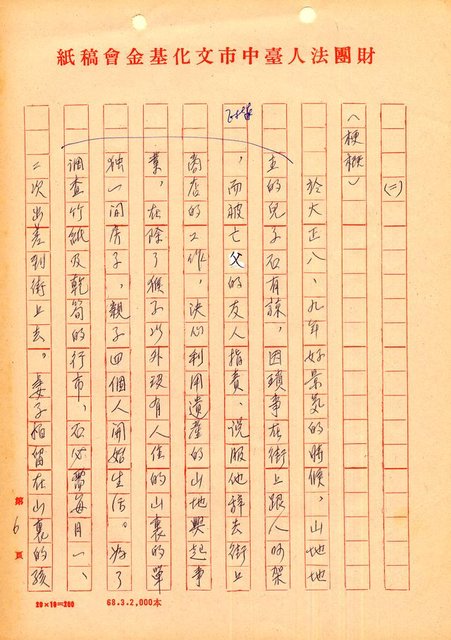 財團法人臺中市文化基金會稿紙
(二)
(梗概)
於大正八、九年好景氣的時候，山地地
主的兒子石有諒，因瑣事在街上跟人吵架
，而被亡父的友人指責、說服他辭去街上
商店的工作，決心利用遺產的山地興起事
業，在除了猴子以外沒有人住的山裏的單
獨一間房子，親子四個人開始生活。為了
調查竹紙及乾筍的行市，石必需每月一、
二次出差到街上去。妻子招留在山裏的孩
第6頁
20×10=200
68.3.2,000本